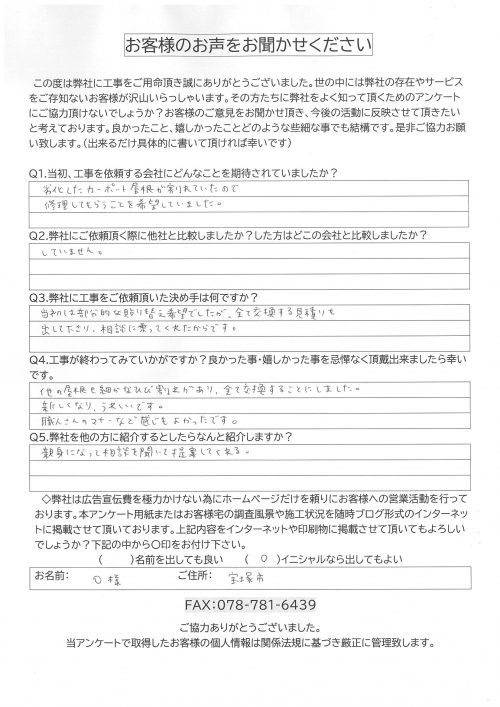 お客様のお声をお聞かせください
この度は弊社に工事をご用命頂き誠にありがとうございました。世の中には弊社の存在やサービス
をご存知ないお客様が沢山いらっしゃいます。その方たちに弊社をよく知って頂くためのアンケート
にご協力頂けないでしょうか?お客様のご意見をお聞かせ頂き、今後の活動に反映させて頂きたい
と考えております。良かったこと、嬉しかったことどのような些細な事でも結構です。是非ご協力お願
い致します。(出来るだけ具体的に書いて頂ければ幸いです)
Q1.当初、工事を依頼する会社にどんなことを期待されていましたか?
劣化したカーポート屋根が割れていたので
修理してもらうことを希望していました。
Q2.弊社にご依頼頂く際に他社と比較しましたか?した方はどこの会社と比較しましたか?
していません。
Q3.弊社に工事をご依頼頂いた決め手は何ですか?
当初は部分的な貼り替え希望でしたが、全て交換する見積りも
出して下さり、相談に乗ってくれたからです。
Q4.工事が終わってみていかがですか?良かった事・嬉しかった事を忌憚なく頂戴出来ましたら幸い
です。
他の屋根も細かなひび割れがあり、全て交換することにしました。
新しくなり、うれしいです。
職人さんのマナーなど感じもよかったです。
Q5.弊社を他の方に紹介するとしたらなんと紹介しますか?
親身になって相談を聞いて提案してくれる。
◇弊社は広告宣伝費を極力かけない為にホームページだけを頼りにお客様への営業活動を行って
おります。本アンケート用紙またはお客様宅の調査風景や施工状況を随時ブログ形式のインターネッ
トに掲載させて頂いております。上記内容をインターネットや印刷物に掲載させて頂いてもよろしい
でしょうか?下記の中から〇印をお付け下さい。
( )名前を出しても良い ( 〇 )イニシャルなら出してもよい
お名前: O 様 ご住所: 宝塚市
FAX:078-781-6439
ご協力ありがとうございました。
当アンケートで取得したお客様の個人情報は関係法規に基づき厳正に管理致します。